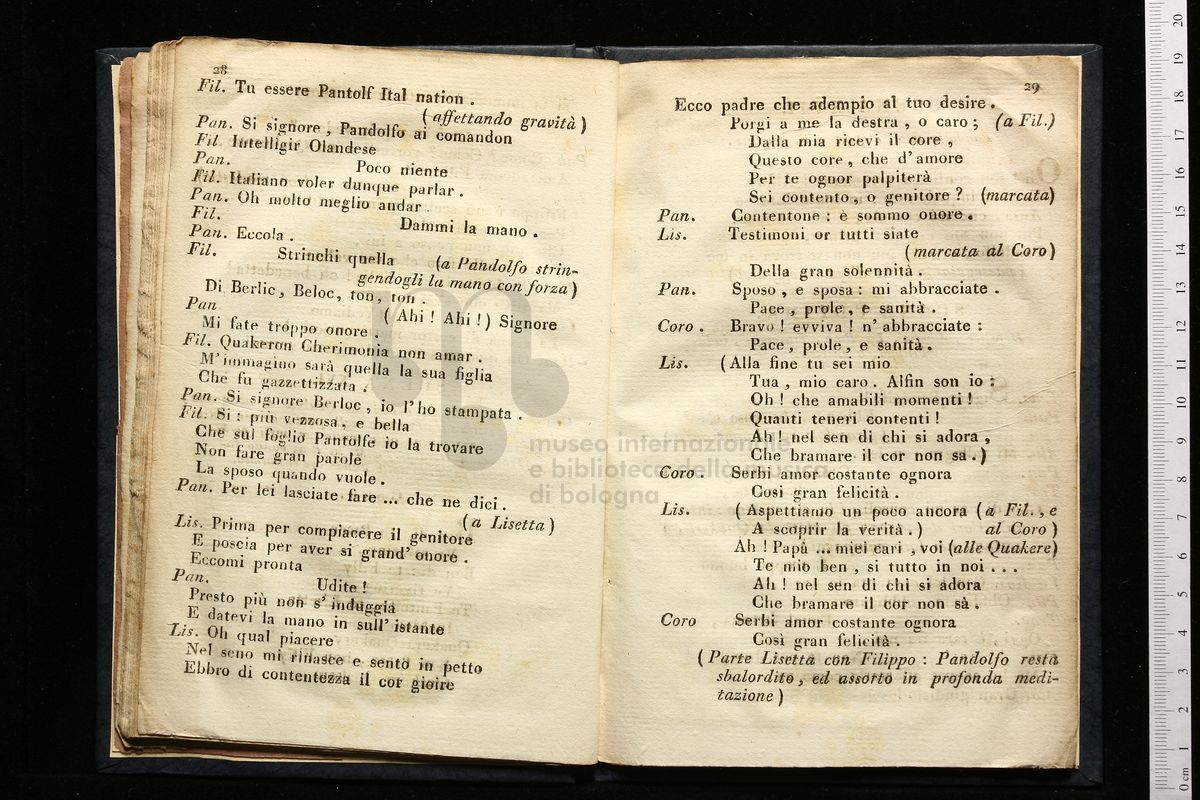 28
Fil. Tu essere Pantolf Ital nation .
(affettando gravità)
Pan. Si signore, Pandolfo ai comandon
Fil Intelligir Olandese
Pan. Poco niente
Fil. Italiano voler dunque parlar .
Pan. Oh molto meglio andar.
Fil. Dammi la mano .
Pan. Eccola .
Fil. Strinchi quella (a Pandolfo strin-
gendogli la mano con forza)
Di Berlic, Beloc, ton, ton .
Pan (Ahi ! Ahi !) Signore
Mi fate troppo onore .
Fil. Quakeron Cherimonia non amar .
M'immagino sarà quella la sua figlia
Che fu gazzettizzata .
Pan. Si signore Berloc, io l'ho stampata .
Fil. Si : più vezzosa, e bella
Che sul foglio Pantolfe io la trovare
Non fare gran parole
La sposo quando vuole .
Pan. Per lei lasciate fare ... che ne dici .
(a Lisetta)
Lis. Prima per compiacere il genitore
E poscia per aver si grand' onore .
Eccomi pronta
Pan. Udite !
Presto più non s'induggia
E datevi la mano in sull' istante
Lis. Oh qual piacere
Nel seno mi rinasce e sento in petto
Ebbro di contentezza il cor gioire
29
Ecco padre che adempio al tuo desire .
Porgi a me la destra, o caro; (a Fil.)
Dalla mia ricevi il core ,
Questo core, che d'amore
Per te ognor palpiterà
Sei contento, o genitore ? (marcata)
Pan. Contentone : è sommo onore .
Lis. Testimoni or tutti siate
(marcata al Coro)
Della gran solennità .
Pan. Sposo, e sposa : mi abbracciate .
Pace, prole, e sanità .
Coro . Bravo ! evviva ! n'abbracciate :
Pace, prole, e sanità .
Lis. (Alla fine tu sei mio
Tua, mio caro . Alfin son io :
Oh ! che amabili momenti !
Quanti teneri contenti !
Ah ! nel sen di chi si adora ,
Che bramare il cor non sa .)
Coro . Serbi amor costante ognora
Così gran felicità .
Lis. (Aspettiamo un poco ancora (a Fil., e
A scoprir la verità .) al Coro)
Ah ! Papà ... miei cari, voi (alle Quakere)
Te mio ben, si tutto in noi ...
Ah ! nel sen di chi si adora
Che bramare il cor non sà .
Coro Serbi amor costante ognora
Così gran felicità .
(Parte Lisetta con Filippo : Pandolfo resta
sbalordito, ed assorto in profonda medi-
tazione)
museo internazionale
e biblioteca della musica
di bologna
0 cm 1 2 3 4 5 6 7 8 9 10 11 12 13 14 15 16 17 18 19 20